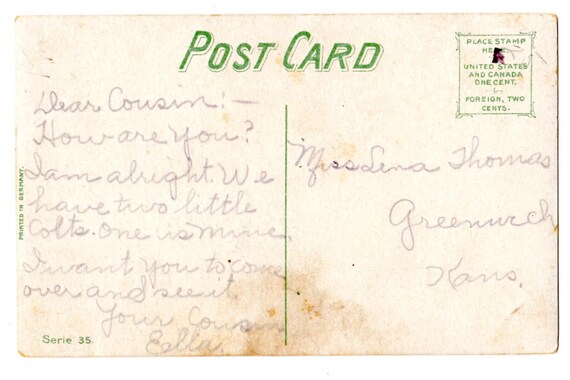 POST CARD
PLACE STAMP
HERE
UNITED STATES
AND CANADA
ONE CENT.
FOREIGN, TWO
CENTS.
Dear Cousin:—
How are you?
I am alright. We
have two little
Colts. One is mine.
I want you to come
over and see it.
Your Cousin
Ella.
Miss Lena Thomas
Greenwich
Kans.
PRINTED IN GERMANY.
Serie 35.